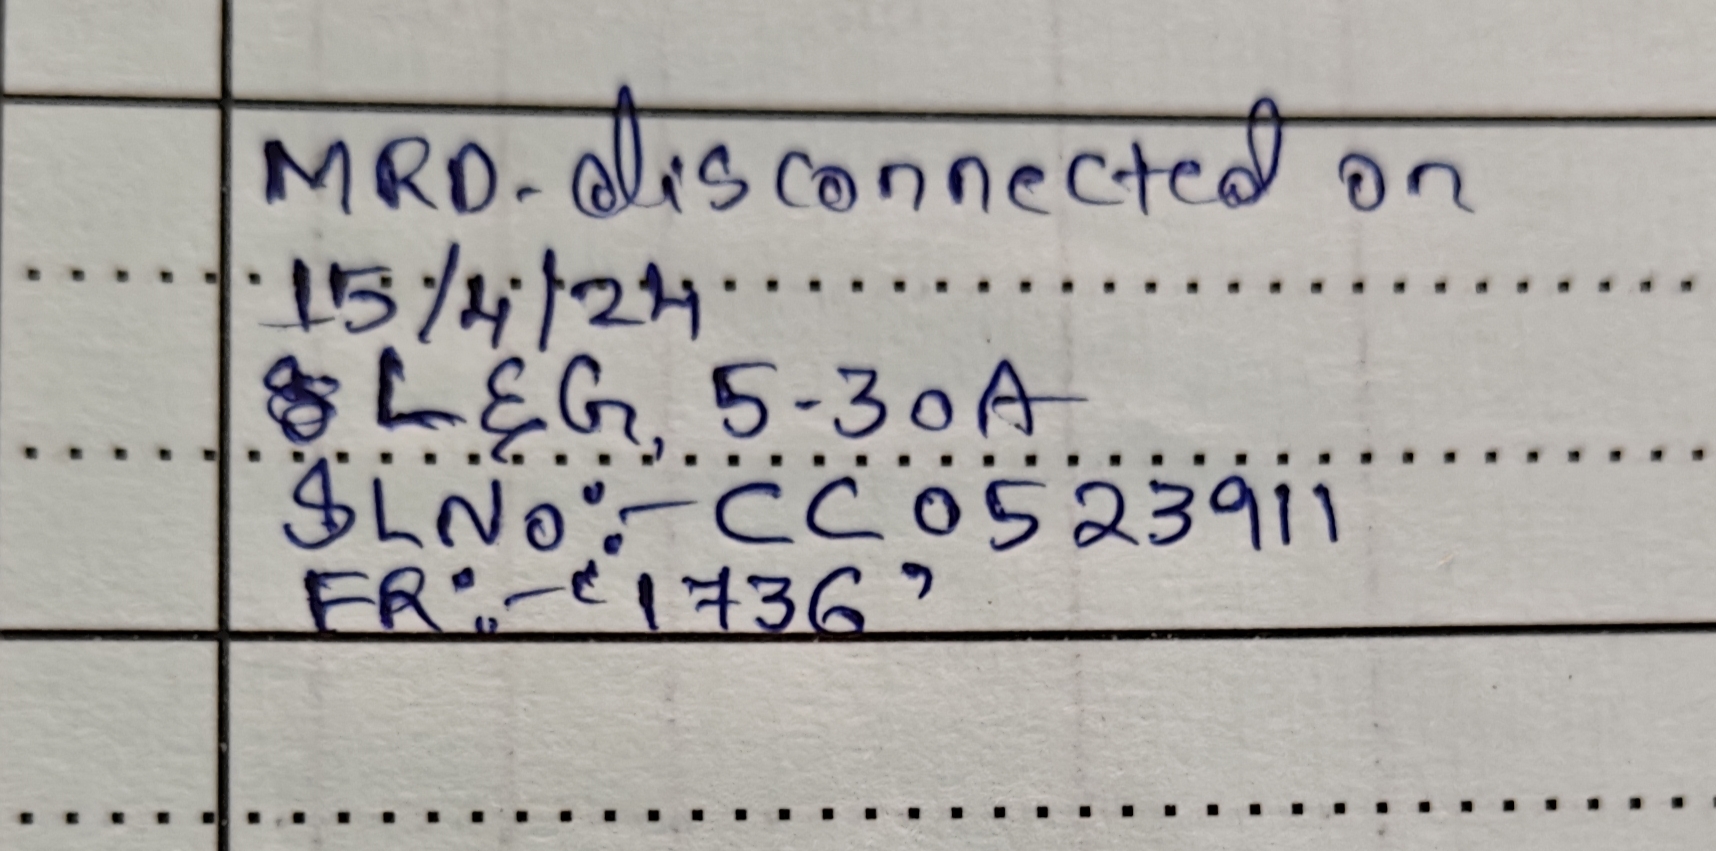 MRD-disconnected on
15/4/24
L&G, 5-30A
SLNo:- CC0523911
FR:- '1736'